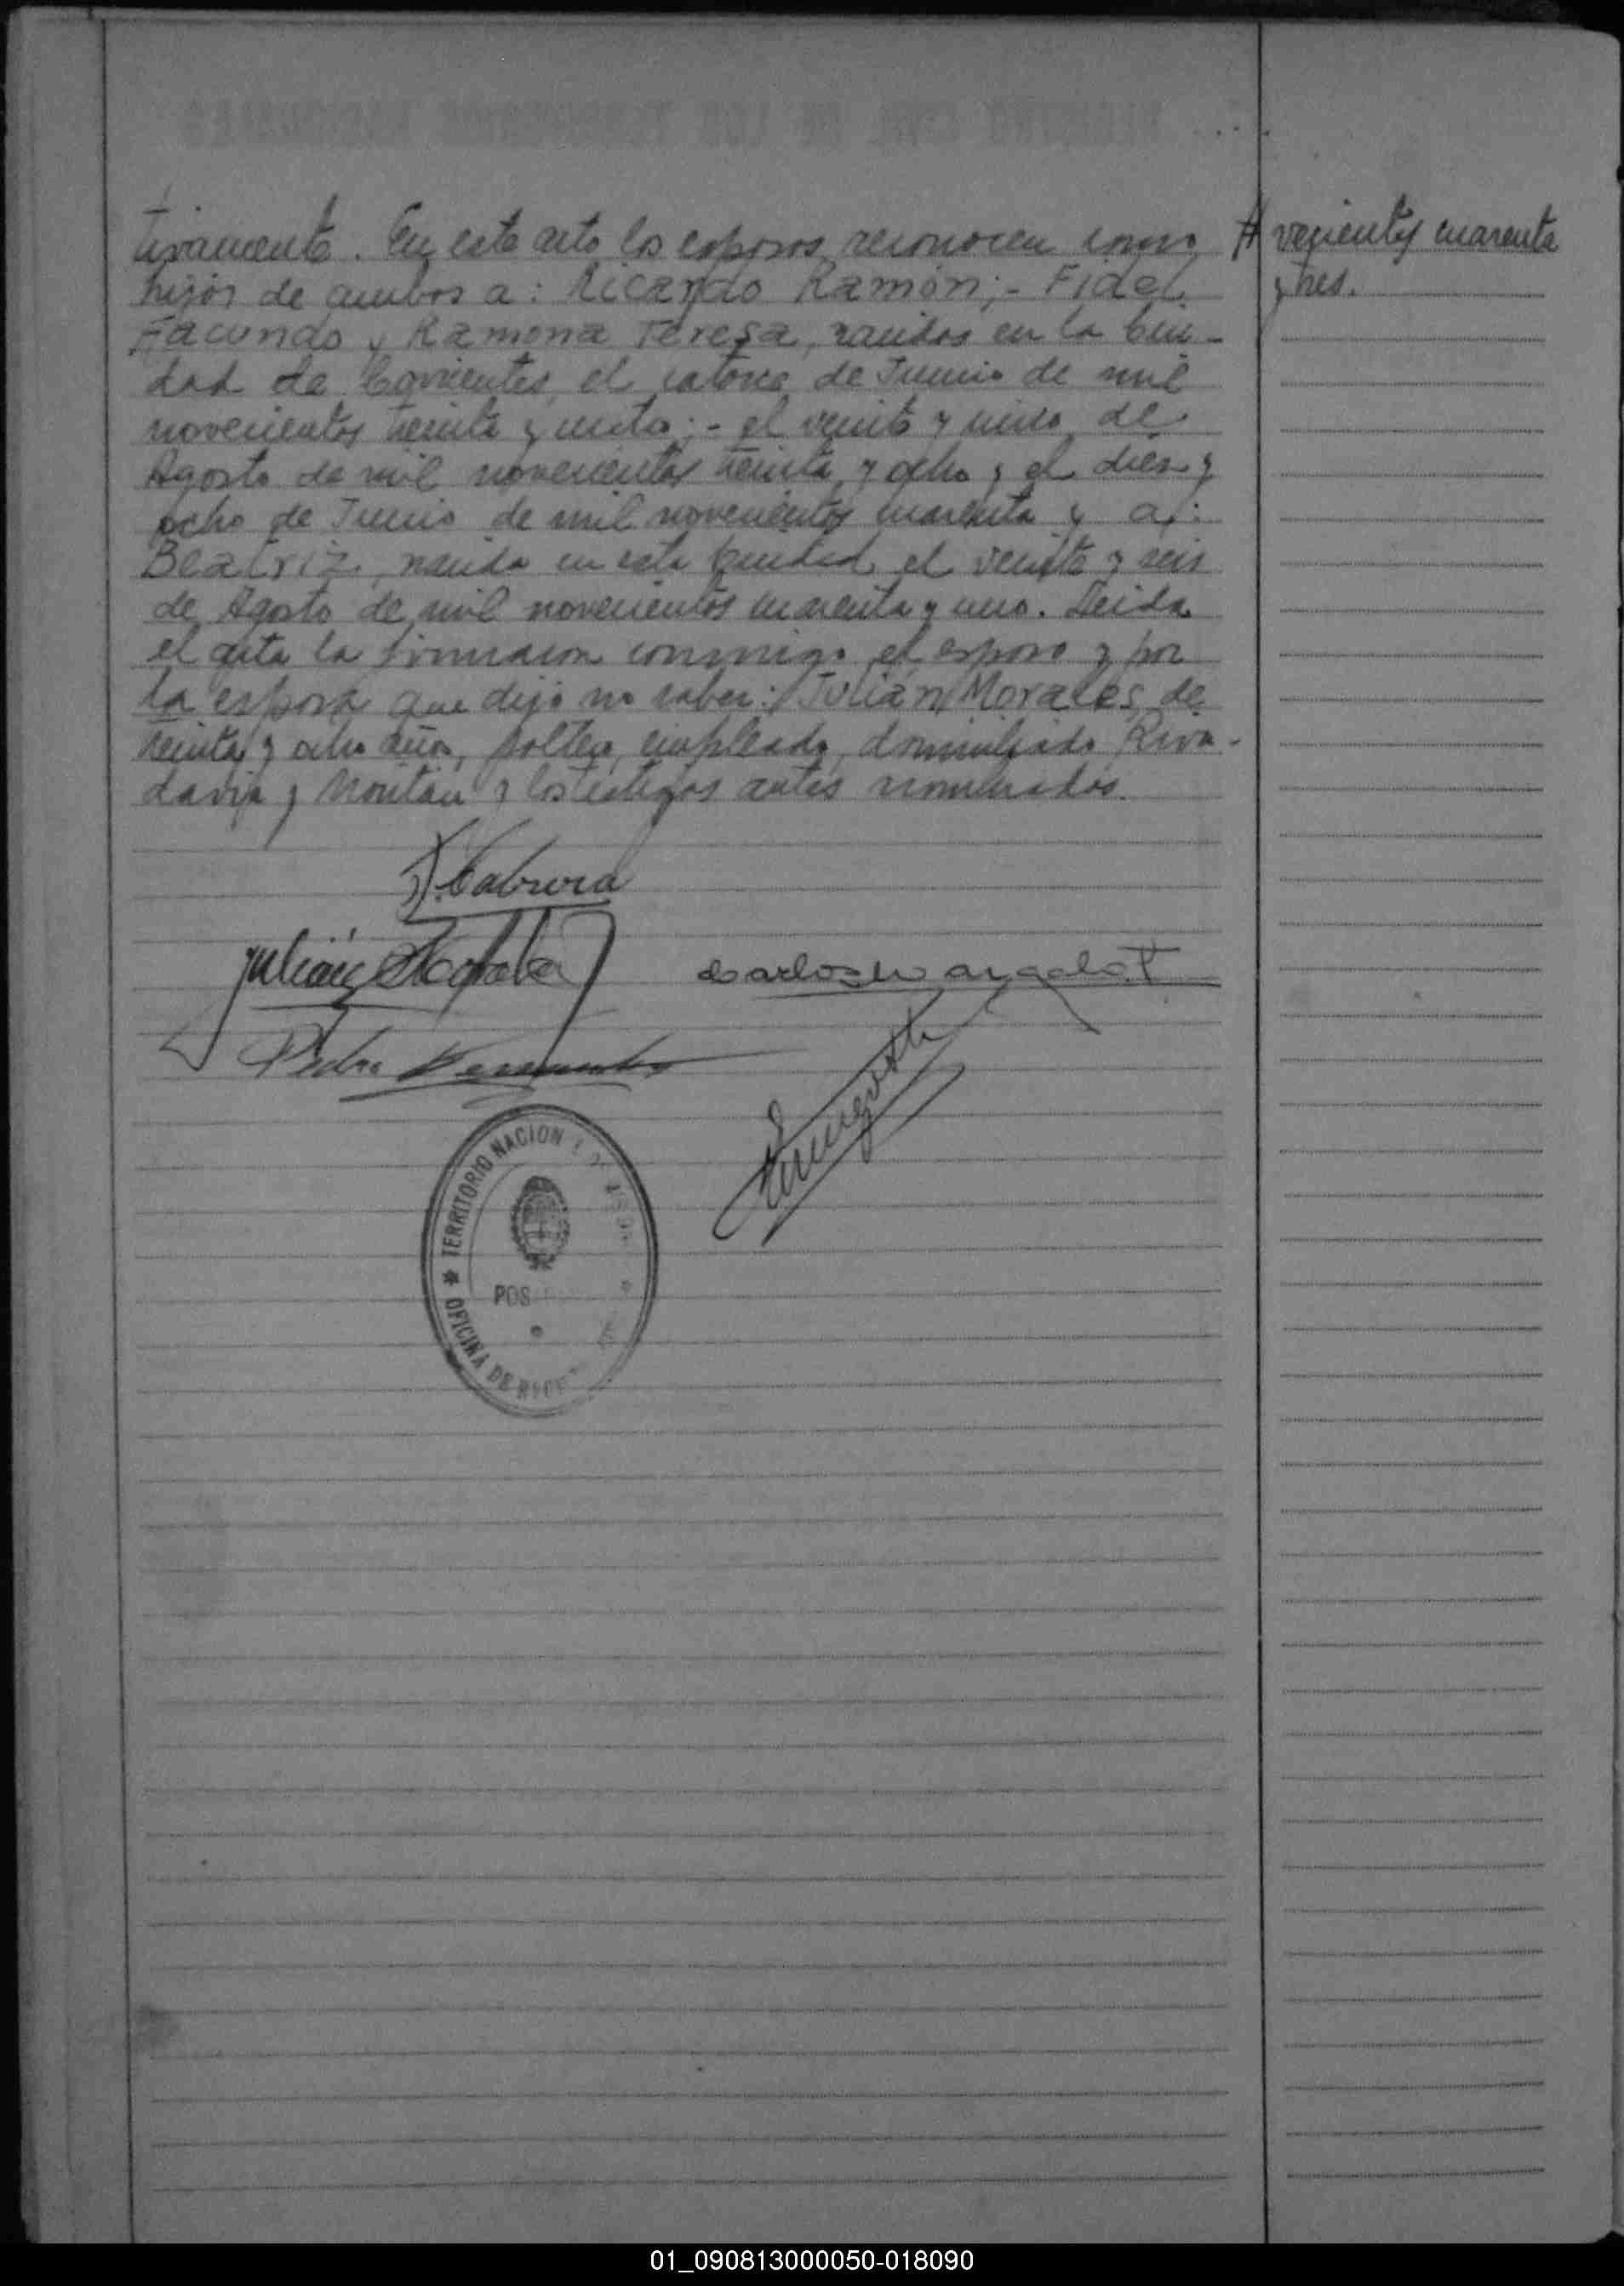 tivamente. En este acto los esposos reconocen como
hijos de ambos a: Ricardo Ramón; - Fidel
Facundo y Ramona Teresa, nacidos en la Ciu-
dad de Corrientes, el catorce de Junio de mil
novecientos treinta y ; - el veinte y de
Agosto de mil novecientos treinta y ocho y el diez y
ocho de Junio de mil novecientos cuarenta y a:
Beatriz, nacida en esta Ciudad el veinte y seis
de Agosto de mil novecientos cuarenta y uno. Leida
el acta la firmaron conmigo el esposo y por
la esposa que dijo no saber: Julián Morales, de
treinta y ocho años, soltero, empleado, domiciliado Riva-
davia y y los testigos antes nombrados.
# vecientos cuarenta
y tres.
F. Cabrera
Julián Morales
Carlos
Pedro
TERRITORIO NACION
POS
OFICINA DE
01_090813000050-018090